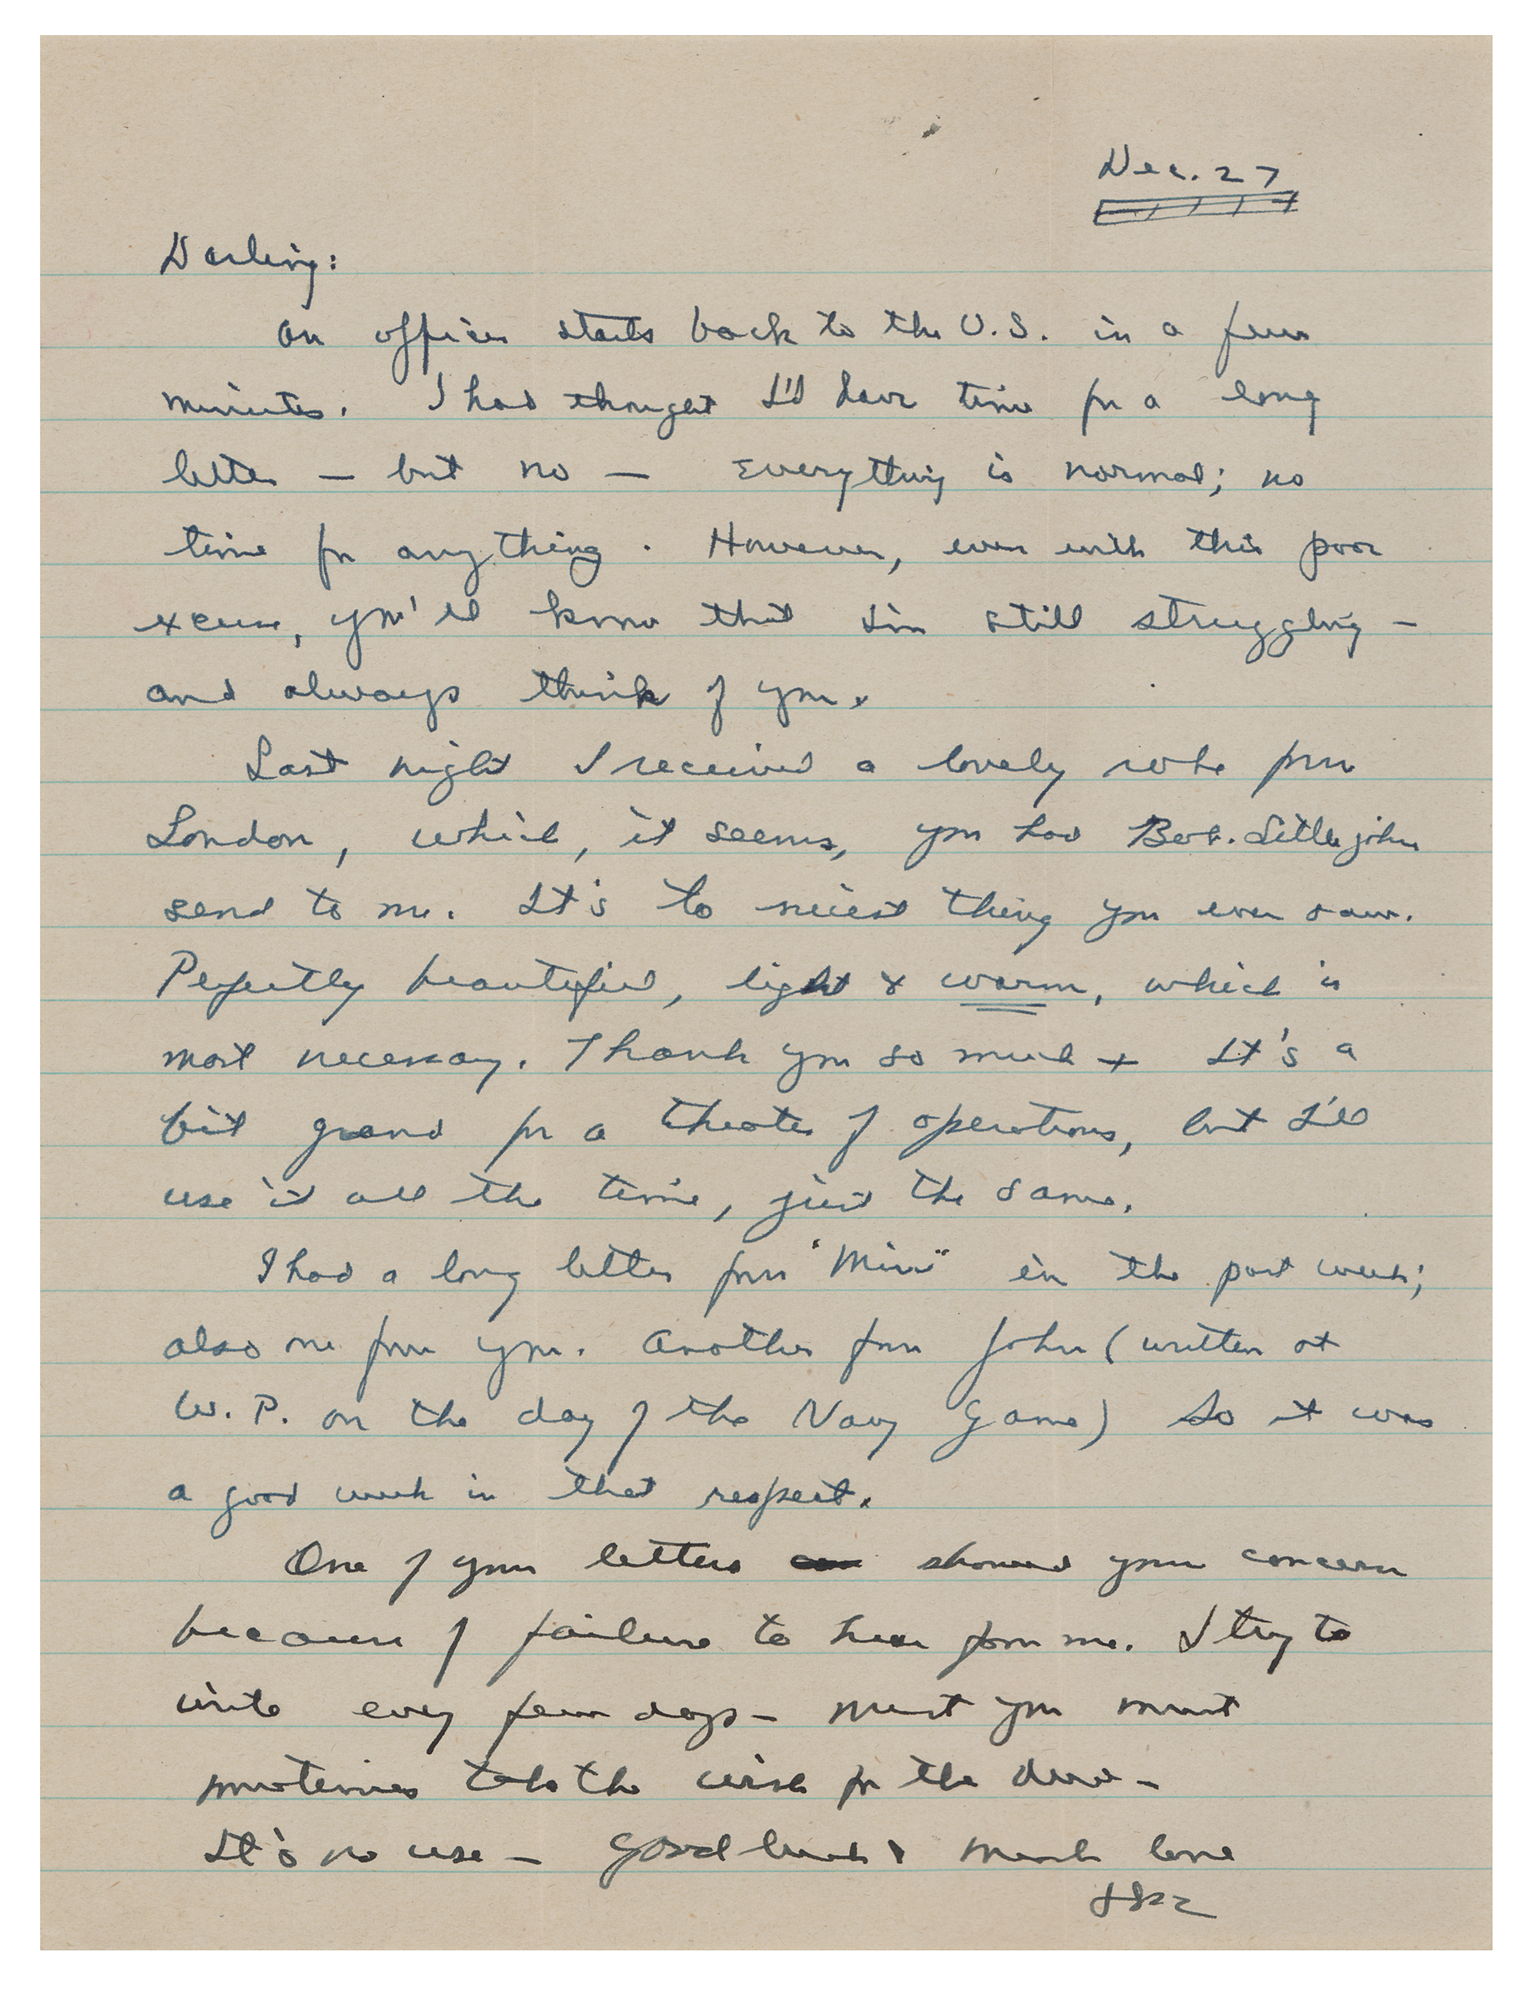 Dec. 27
Darling:
An officer starts back to the U.S. in a few
minutes. I had thought I'd have time for a long
letter — but no — Everything is normal; no
time for anything. However, even with this poor
excuse, you'll know that I'm still struggling —
and always think of you.
Last night I received a lovely robe from
London, which, it seems, you had Bob. Littlejohn
send to me. It's to nicest thing you ever saw.
Perfectly beautiful, light & warm, which is
most necessary. Thank you so much + It's a
bit grand for a theater of operations, but I'll
use it all the time, just the same.
I had a long letter from "Min" in the past week;
also one from you. Another from John (written at
W. P. on the day of the Navy Game) So it was
a good week in that respect.
One of your letters showed your concern
because of failure to hear from me. I try to
write every few days — must you must
sometimes take the wish for the deed —
It's no use — Good luck & much love
Ike